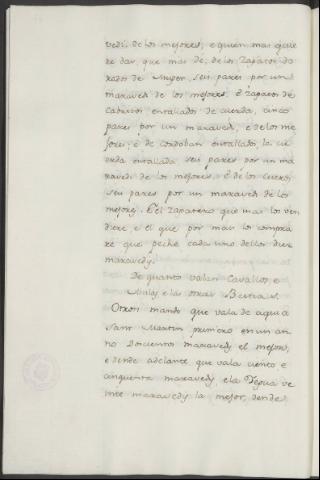 vedi. de los mejores, e quien mas quisie
re dar, que mas de, de los Zapatos do
rados de Muger, seis pares por un
maravedi de los mejores. E Zapatos de
Cabritos entallados de cuerda, cinco
pares por un maravedi, e de los me
jores; e de cordoban entallados la cu
erda entallada seis pares por un ma
ravedi de los mejores. E de los cueros
seis pares por un maravedi de los
mejores. E el Zapatero que mas los ven
diere e el que por mas lo compra
re que peche cada uno dellos diez
maravedis.
De quanto valan Cavallos, e
Mulas e las otras Bestias.
Otrosi mando que vala de aqui a
Sant Martin primero en un an
no Docientos maravedis el mejor,
e dende adelante que vala ciento e
cinquenta maravedis, e la Yegua ve
inte maravedis la mejor, dende